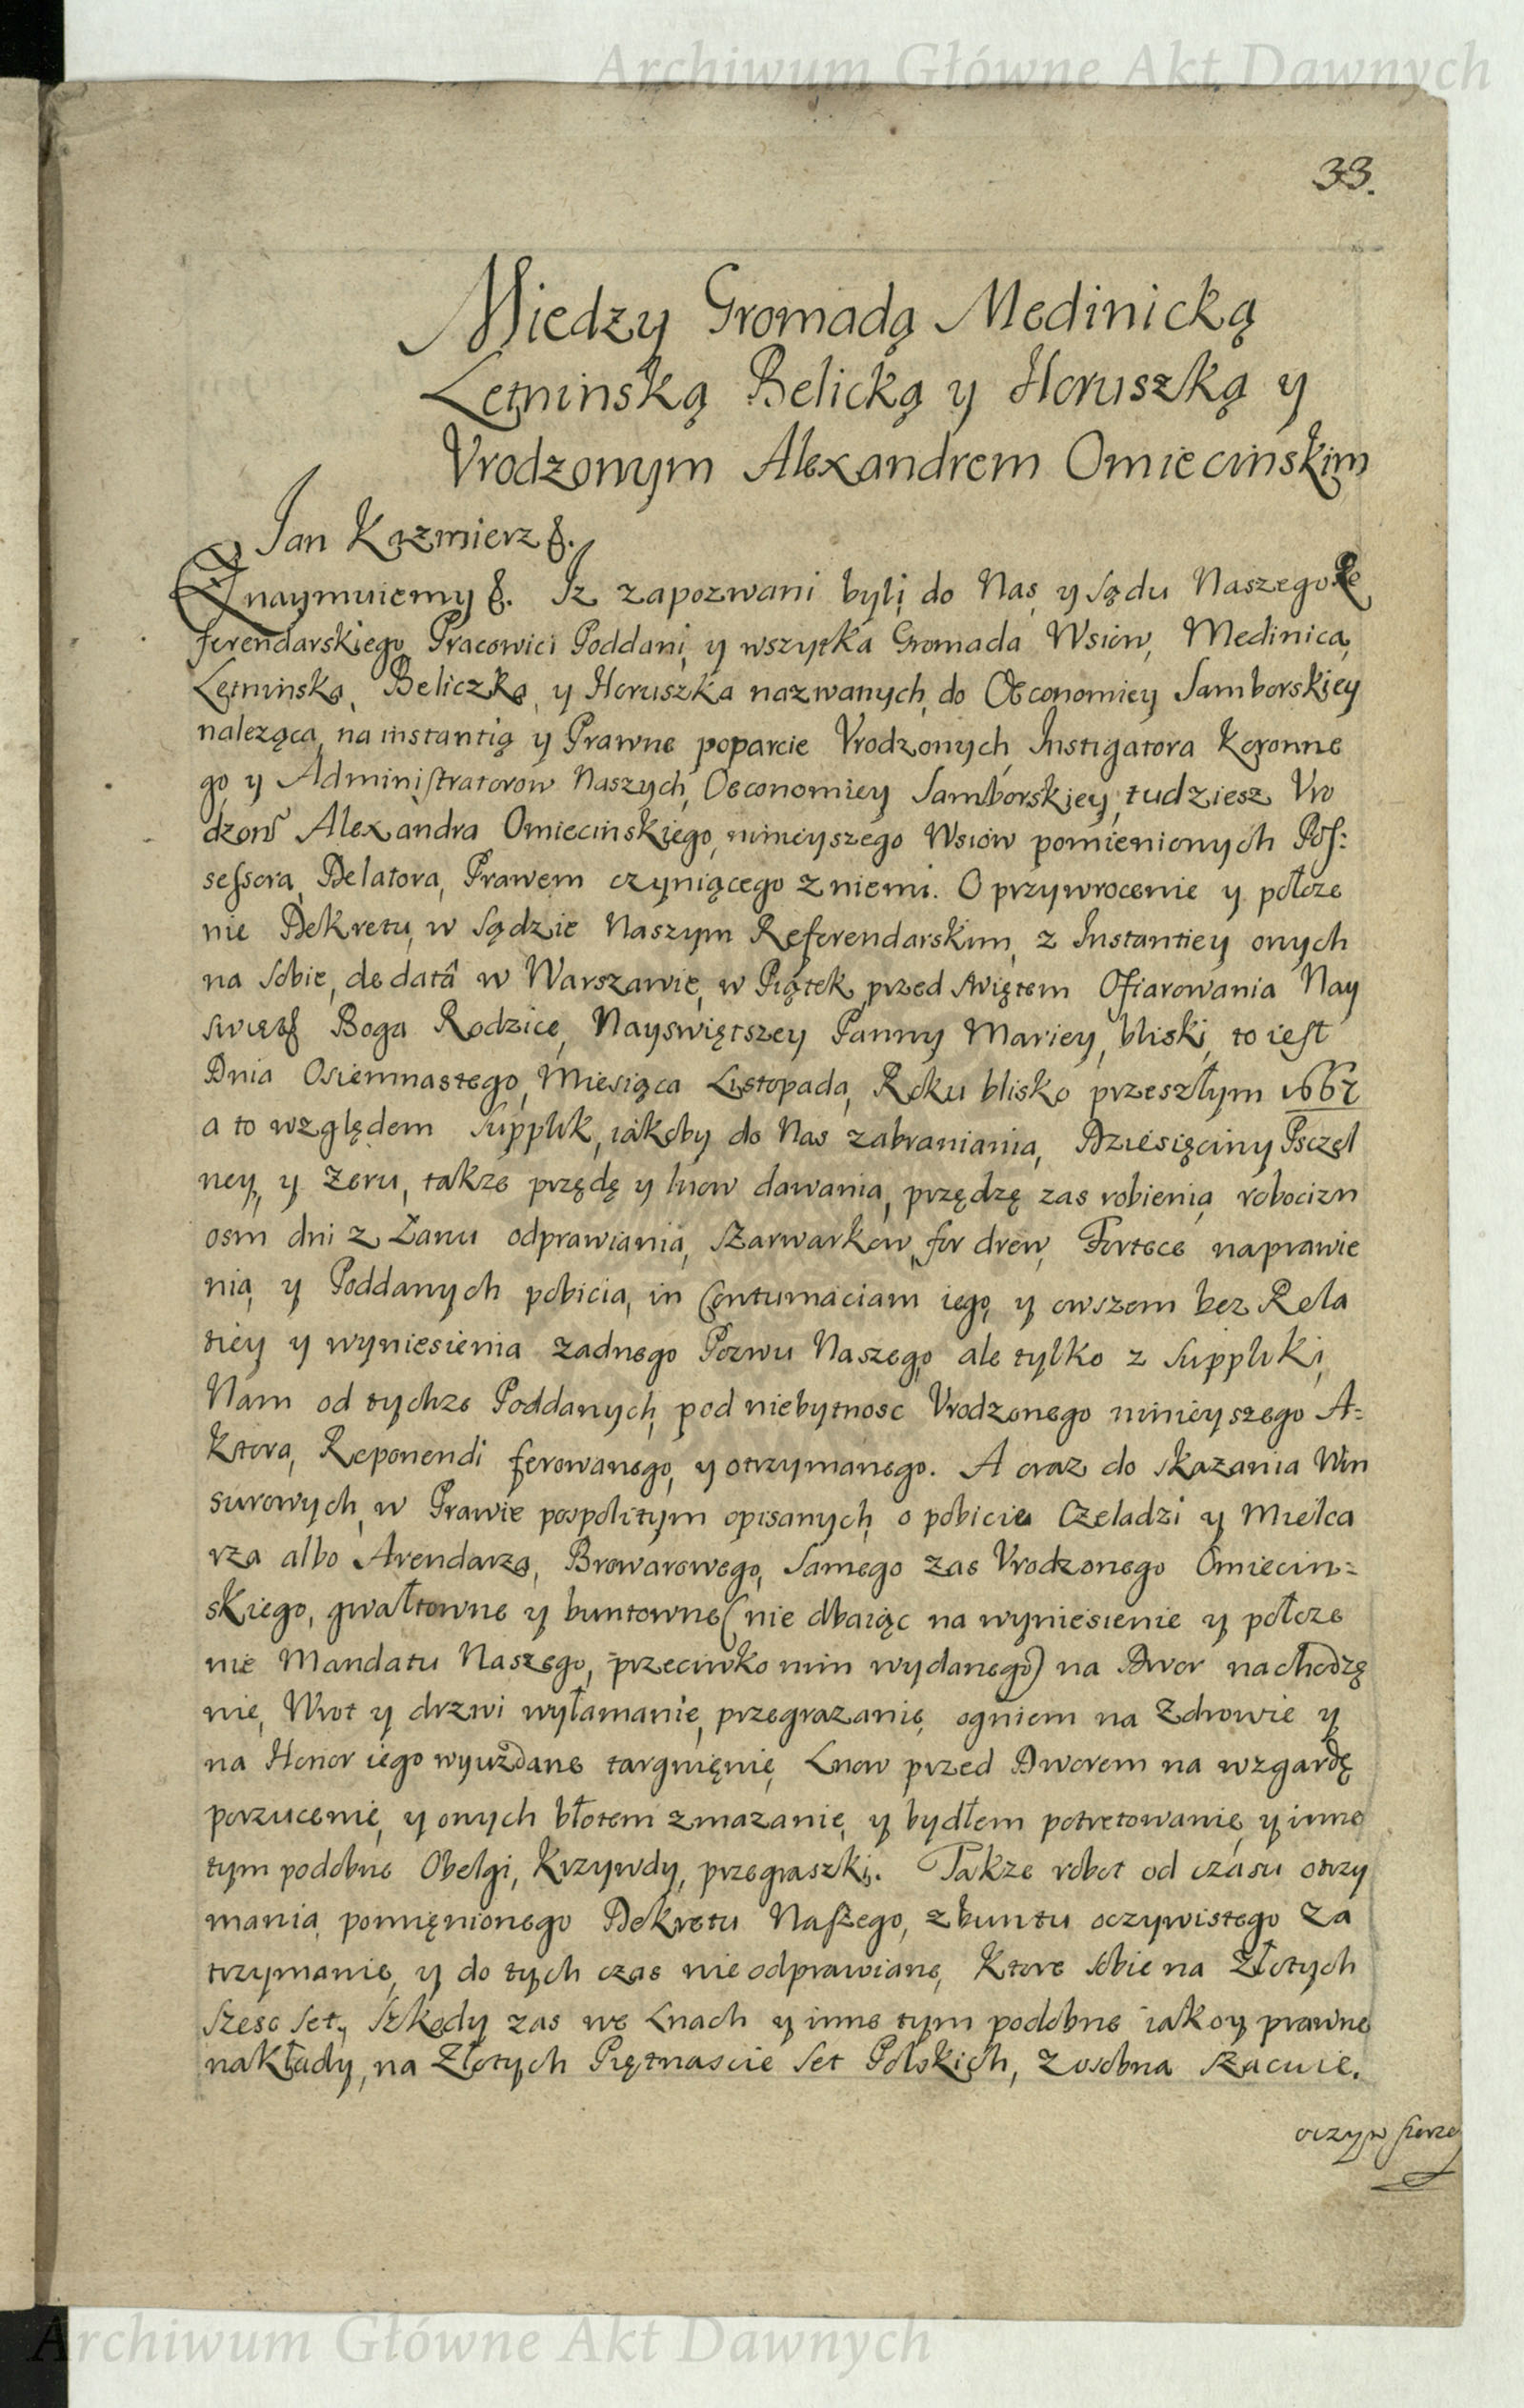 Archiwum Główne Akt Dawnych
33.
Miedzy Gromadą Medinicką
Letninską Belicką y Horuszką y
Vrodzonym Alexandrem Omiecinskim
Jan Kazmierz &.
Znaymuiemy &. Iz zapozwani byli do Nas y Sądu Naszego Re
ferendarskiego Pracowici Poddani, y wszytka Gromada Wsiow, Medinica,
Letninska, Beliczka, y Horuszka nazwanych, do Oeconomiey Samborskiey
naleząca, na instantią y Prawne poparcie Vrodzonych Instigatora Koronne
go y Administratorow Naszych, Oeconomiey Samborskiey, tudziesz Vro
dzon Alexandra Omiecinskiego, ninieyszego Wsiow pomienionych Pos:
sessora, Delatora, Prawem czyniącego z niemi. O przywrocenie y połoze
nie Dekretu, w Sądzie Naszym Referendarskim, z Instantiey onych
na Sobie, de datâ w Warszawie, w Piątek przed swiętem Ofiarowania Nay
swięt Boga Rodzice, Nayswiętszey Panny Mariey, bliski, to iest
Dnia Osiemnastego, Miesiąca Listopada, Roku blisko przeszłym 1667
a to względem Supplik, iakoby do Nas zabraniania, Dziesięciny Psczel
ney, y Zeru, takze przędę y lnow dawania, przędzę zas robienia robocizn
osm dni z Łanu odprawiania, Szarwarkow, for drew, Fortece naprawie
nia, y Poddanych pobicia, in Contumaciam iego, y owszem bez Rela
tiey y wyniesienia zadnego Pozwu Naszego, ale tylko z Suppliki,
Nam od tychze Poddanych, pod niebytnosc Vrodzonego ninieyszego A=
ktora, Reponendi ferowanego, y otrzymanego. A oraz do skazania Win
surowych, w Prawie pospolitym opisanych, o pobicie Czeladzi y Mielca
rza albo Arendarza, Browarowego, Samego zas Vrodzonego Omiecin=
skiego, gwałtowne y buntowne (nie dbaiąc na wyniesienie y połoze
nie Mandatu Naszego, przeciwko nim wydanego) na Dwor nachodzę
nie, Wrot y drzwi wyłamanie, przegrazanie, ogniem na Zdrowie y
na Honor iego wyuzdane targnięnie, Lnow przed Dworem na wzgardę
porzucenie, y onych błotem zmazanie, y bydłem potretowanie, y inne
tym podobne Obelgi, Krzywdy, przegraszki. Takze robot od czasu otrzy
mania pomięnionego Dekretu Naszego, z buntu oczywistego za
trzymanie, y do tych czas nie odprawiane, Ktore sobie na Złotych
Szesc Set, Szkody zas we Lnach y inne tym podobne iako y prawne
nakłady, na Złotych Piętnascie Set Polskich, z osobna szacuie.
Archiwum Główne Akt Dawnych